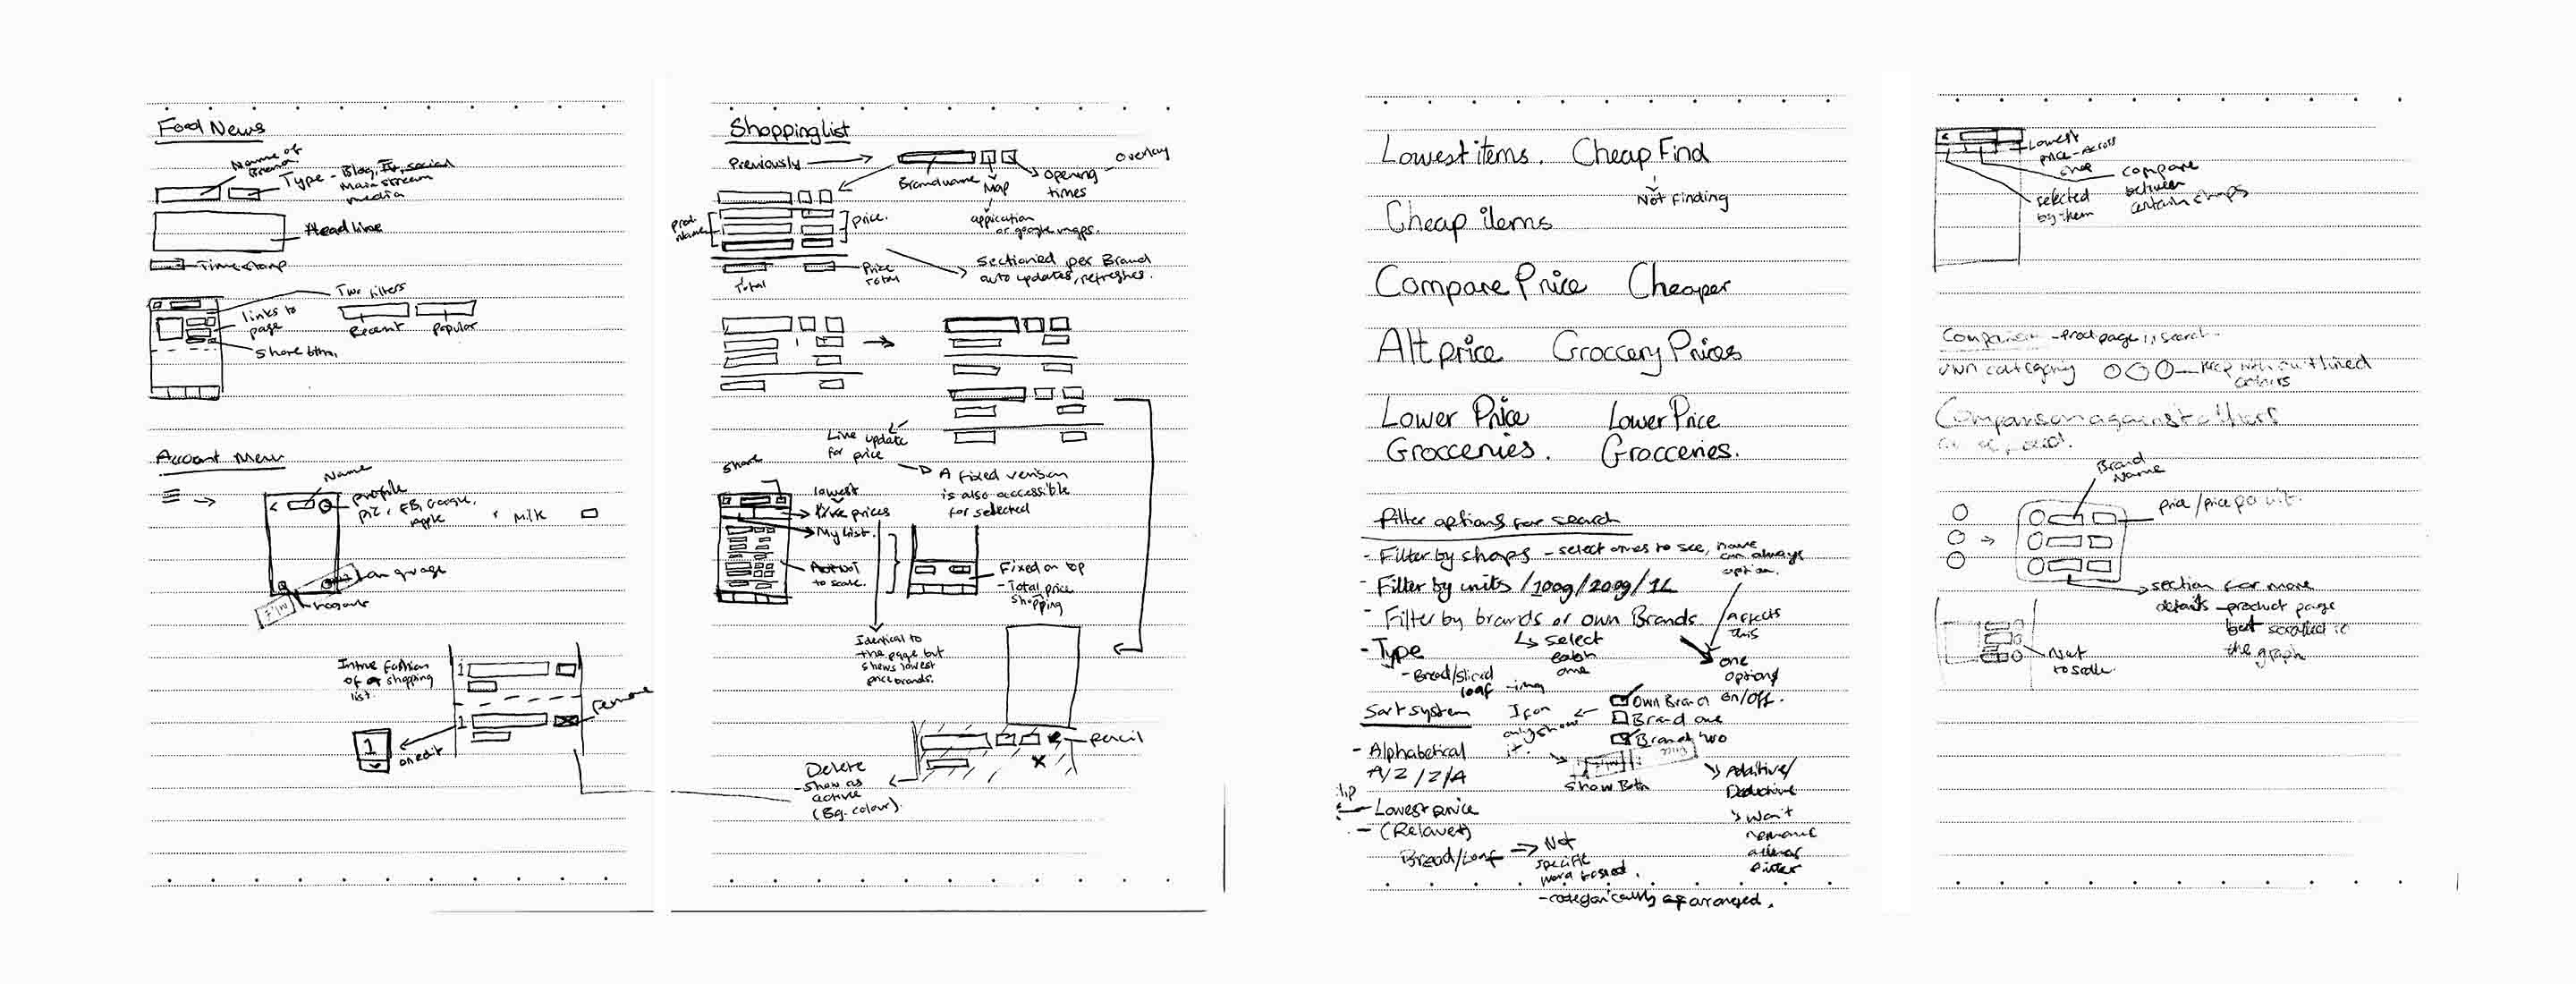 Food News
Name of
Brand
Type - Blog, TV, social
Main stream
media
Headline
Time stamp
Two filters
links to
page
Recent
Popular
Share btn.
Account Menu
Name
profile
pic, FB, Google,
Apple
Milk
Language
logout
In true fashion
of a shopping
list.
1
1
remove
1
on edit
Shopping list
Previously
Overlay
Brand name
Map
opening
times
prod.
Name
price.
application
or google maps.
Total
Price
Total
Sectioned per Brand
auto updates, refreshes.
Live update
for price
A fixed verison
is also accessible
for selected
Share
lowest
Live prices
My list.
Not
to scale.
Fixed on top
- Total price
Shopping
Identical to
the page but
shows lowest
price brands.
pencil
Delete
- Show as
active
(Bg. colour).
Lowest items. Cheap Find
Not finding
Cheap items
Compare Price Cheaper
Alt price Groccery Prices
Lower Price Lower Price
Groccenies. Grocceries.
Filter options for search
- Filter by shops - select ones to see, have
can always
option.
- Filter by units /100g/200g/1L
- Filter by brands or own Brands
affects
this
select
each
one
- Type
- Bread/Sliced
loaf - img
one
option
on/off.
Sort system
If on
only show
it.
Own Brand
Brand one
Brand two
- Alphabetical
A/Z / Z/A
Show Both
Additive/
Deductive
Won't
remove
other
filter
- Lowest price
- (Relavet)
Bread/Loaf
Not
specific
word based.
- categorically arranged.
Lowest
price - across
selected
by them
compare
between
certain shops
Comparison - prod page, search
own category
Keep with outlined
colours
Comparison against others
Brand
Name
price / price per unit.
section for more
details - product page
but scrolled to
the graph
Not
to scale.